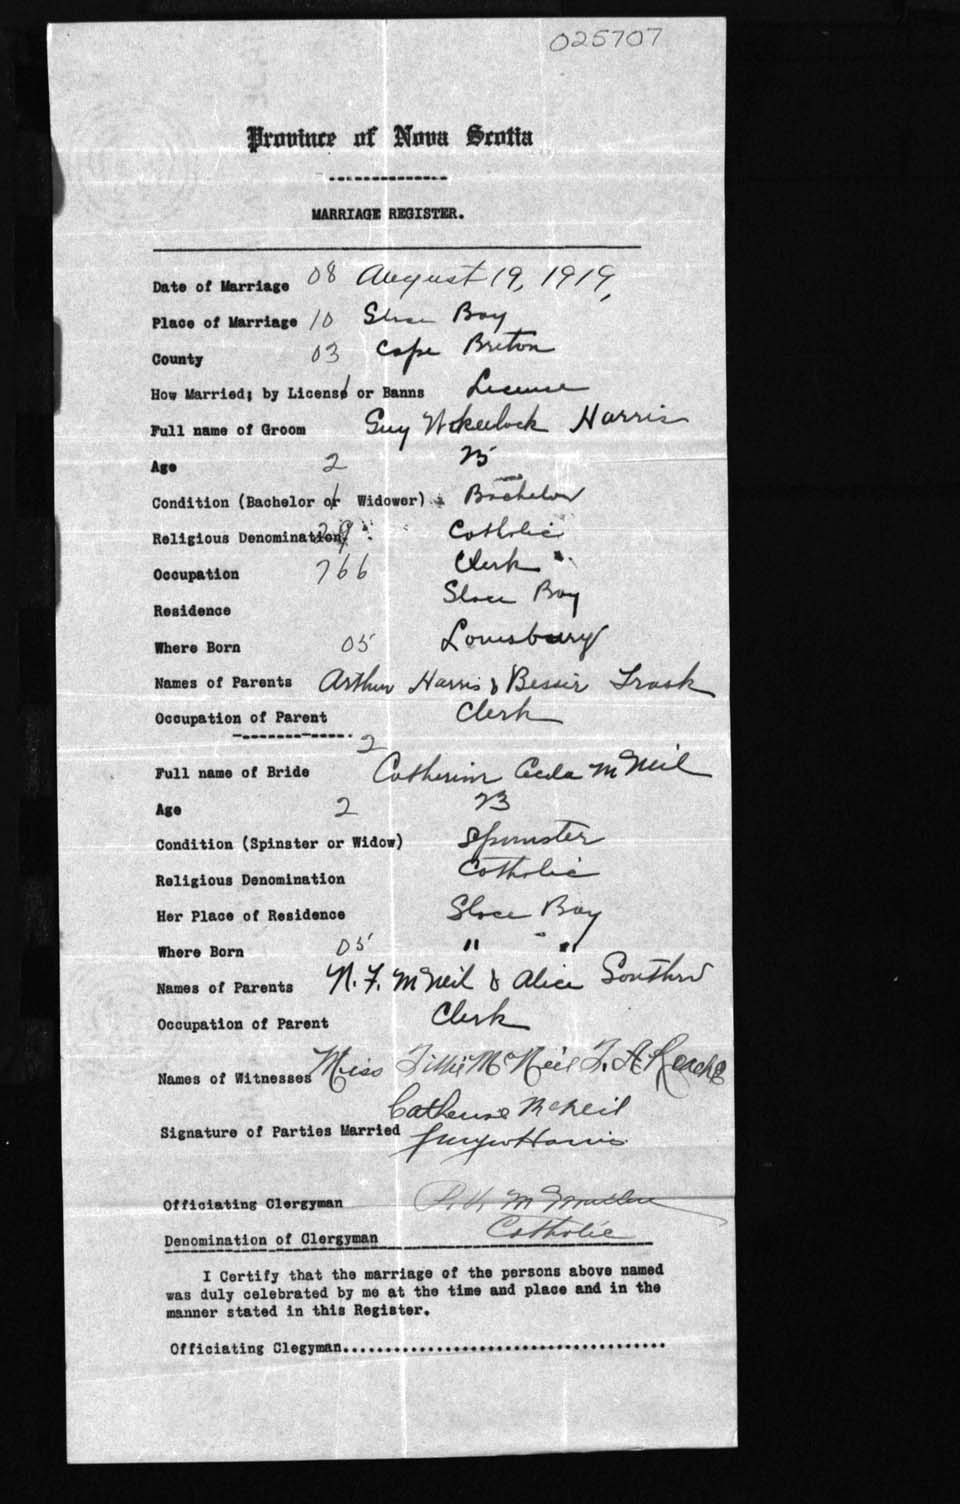 025707
Province of Nova Scotia
MARRIAGE REGISTER.
Date of Marriage 08 August 19, 1919,
Place of Marriage 10 Glace Bay
County 03 Cape Breton
How Married; by License or Banns License
Full name of Groom Guy Wheelock Harris
Age 2 25
Condition (Bachelor or Widower) 1 Bachelor
Religious Denomination Catholic
Occupation 766 Clerk
Residence Glace Bay
Where Born 05 Louisburg
Names of Parents Arthur Harris & Bessie Trask
Occupation of Parent Clerk
2
Full name of Bride Catherine McNeil
Age 2 23
Condition (Spinster or Widow) Spinster
Religious Denomination Catholic
Her Place of Residence Glace Bay
Where Born 05 " "
Names of Parents N. F. McNeil & Alice
Occupation of Parent Clerk
Names of Witnesses Miss Tillie McNeil
Catherine McNeil
Signature of Parties Married Guy W Harris
Officiating Clergyman
Denomination of Clergyman Catholic
I Certify that the marriage of the persons above named
was duly celebrated by me at the time and place and in the
manner stated in this Register.
Officiating Clegyman......................................